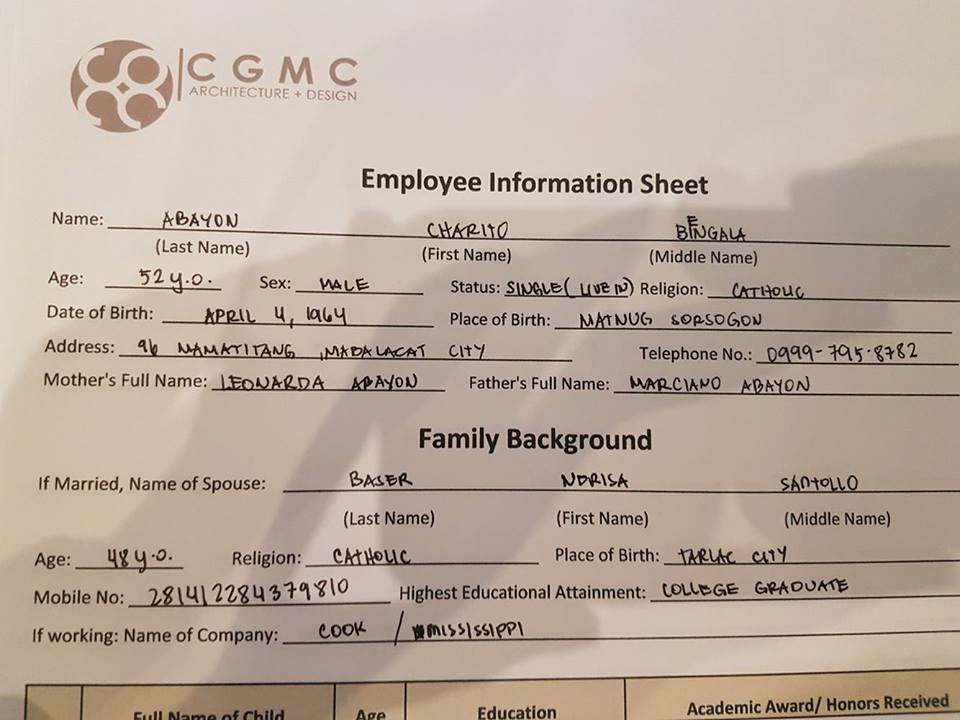 CGMC
ARCHITECTURE + DESIGN
Employee Information Sheet
Name: ABAYON CHARITO BENGALA
(Last Name) (First Name) (Middle Name)
Age: 52 y.o. Sex: MALE Status: SINGLE (LIVE IN) Religion: CATHOLIC
Date of Birth: APRIL 4, 1964 Place of Birth: MATNUG SORSOGON
Address: 96 MAMATITANG , MADALACAT CITY Telephone No.: 0999-795-8782
Mother's Full Name: LEONARDA ABAYON Father's Full Name: MARCIANO ABAYON
Family Background
If Married, Name of Spouse: BASER NORISA SANTOLLO
(Last Name) (First Name) (Middle Name)
Age: 48 y.o. Religion: CATHOLIC Place of Birth: TARLAC CITY
Mobile No: 281412284379810 Highest Educational Attainment: COLLEGE GRADUATE
If working: Name of Company: COOK / MISSISSIPPI
Full Name of Child Age Education Academic Award/ Honors Received